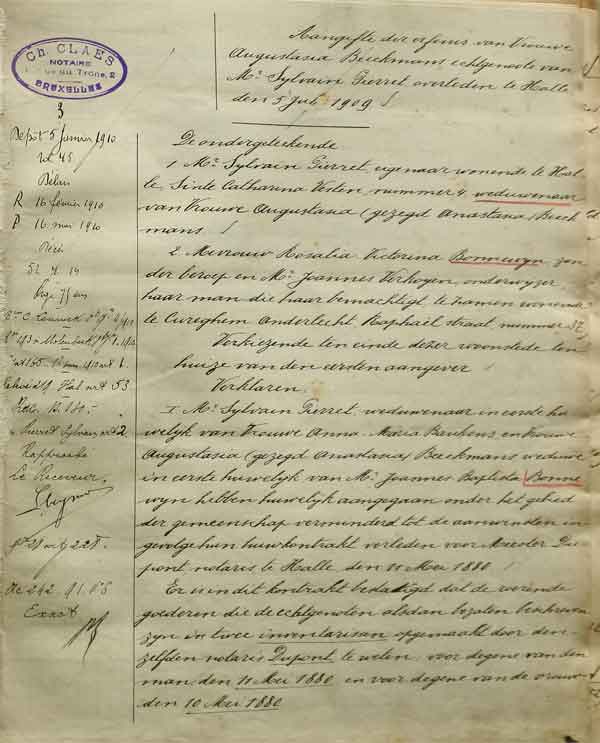 Ch. CLAES
NOTAIRE
Rue du Trône, 2
BRUXELLES
3
Dépôt 5 janvier 1910
n° 45
Bilan
R 16 février 1910
P 16 mai 1910
52 4 14
Hal n° 53
Sylvain n° 2
Le Receveur
Exact
Aangifte der erfenis van Vrouwe
Augustasia Beeckmans echtgenoote van
Mr. Sylvain Pierret overleden te Halle
den 5 Juli 1909
De ondergeteekende
1 Mr. Sylvain Pierret, eigenaar wonende te Hal
le, Sinte Catharina Vesten, nummer 4 weduwenaar
van Vrouwe Augustasia (gezegd Anastasia) Beeck
mans
2. Mevrouw Rosalia Victorina Bonnewyn, zon
der beroep en Mr. Joannes Verhoyen, onderwyzer,
haar man die haar bemachtigt te zamen wonende
te Cureghem Anderlecht Raphaël straat, nummer 37
Verkiezende ten einde dezer woonstede ten
huize van den eersten aangever
Verklaren.
I. Mr. Sylvain Pierret, weduwenaar in eerste hu
welyk van Vrouwe Anna Maria en Vrouwe
Augustasia (gezegd Anastasia) Beeckmans weduwe
in eerste huwelyk van Mr. Joannes Baptista Bonne
wyn hebben huwelyk aangegaan onder het gebied
der gemeenschap verminderd tot de aanwinsten in
gevolge hun huwkontrakt verleden voor Meester Du
pont notaris te Halle den 11 Mei 1880
Er is in dit kontrakt bestatigd dat de roerende
goederen die de echtgenoten alsdan bezaten beschreven
zyn in twee inventarissen opgemaakt door den
zelfden notaris Dupont te weten, voor degene van den
man, den 11 Mei 1880 en voor degene van de vrouw
den 10 Mei 1880